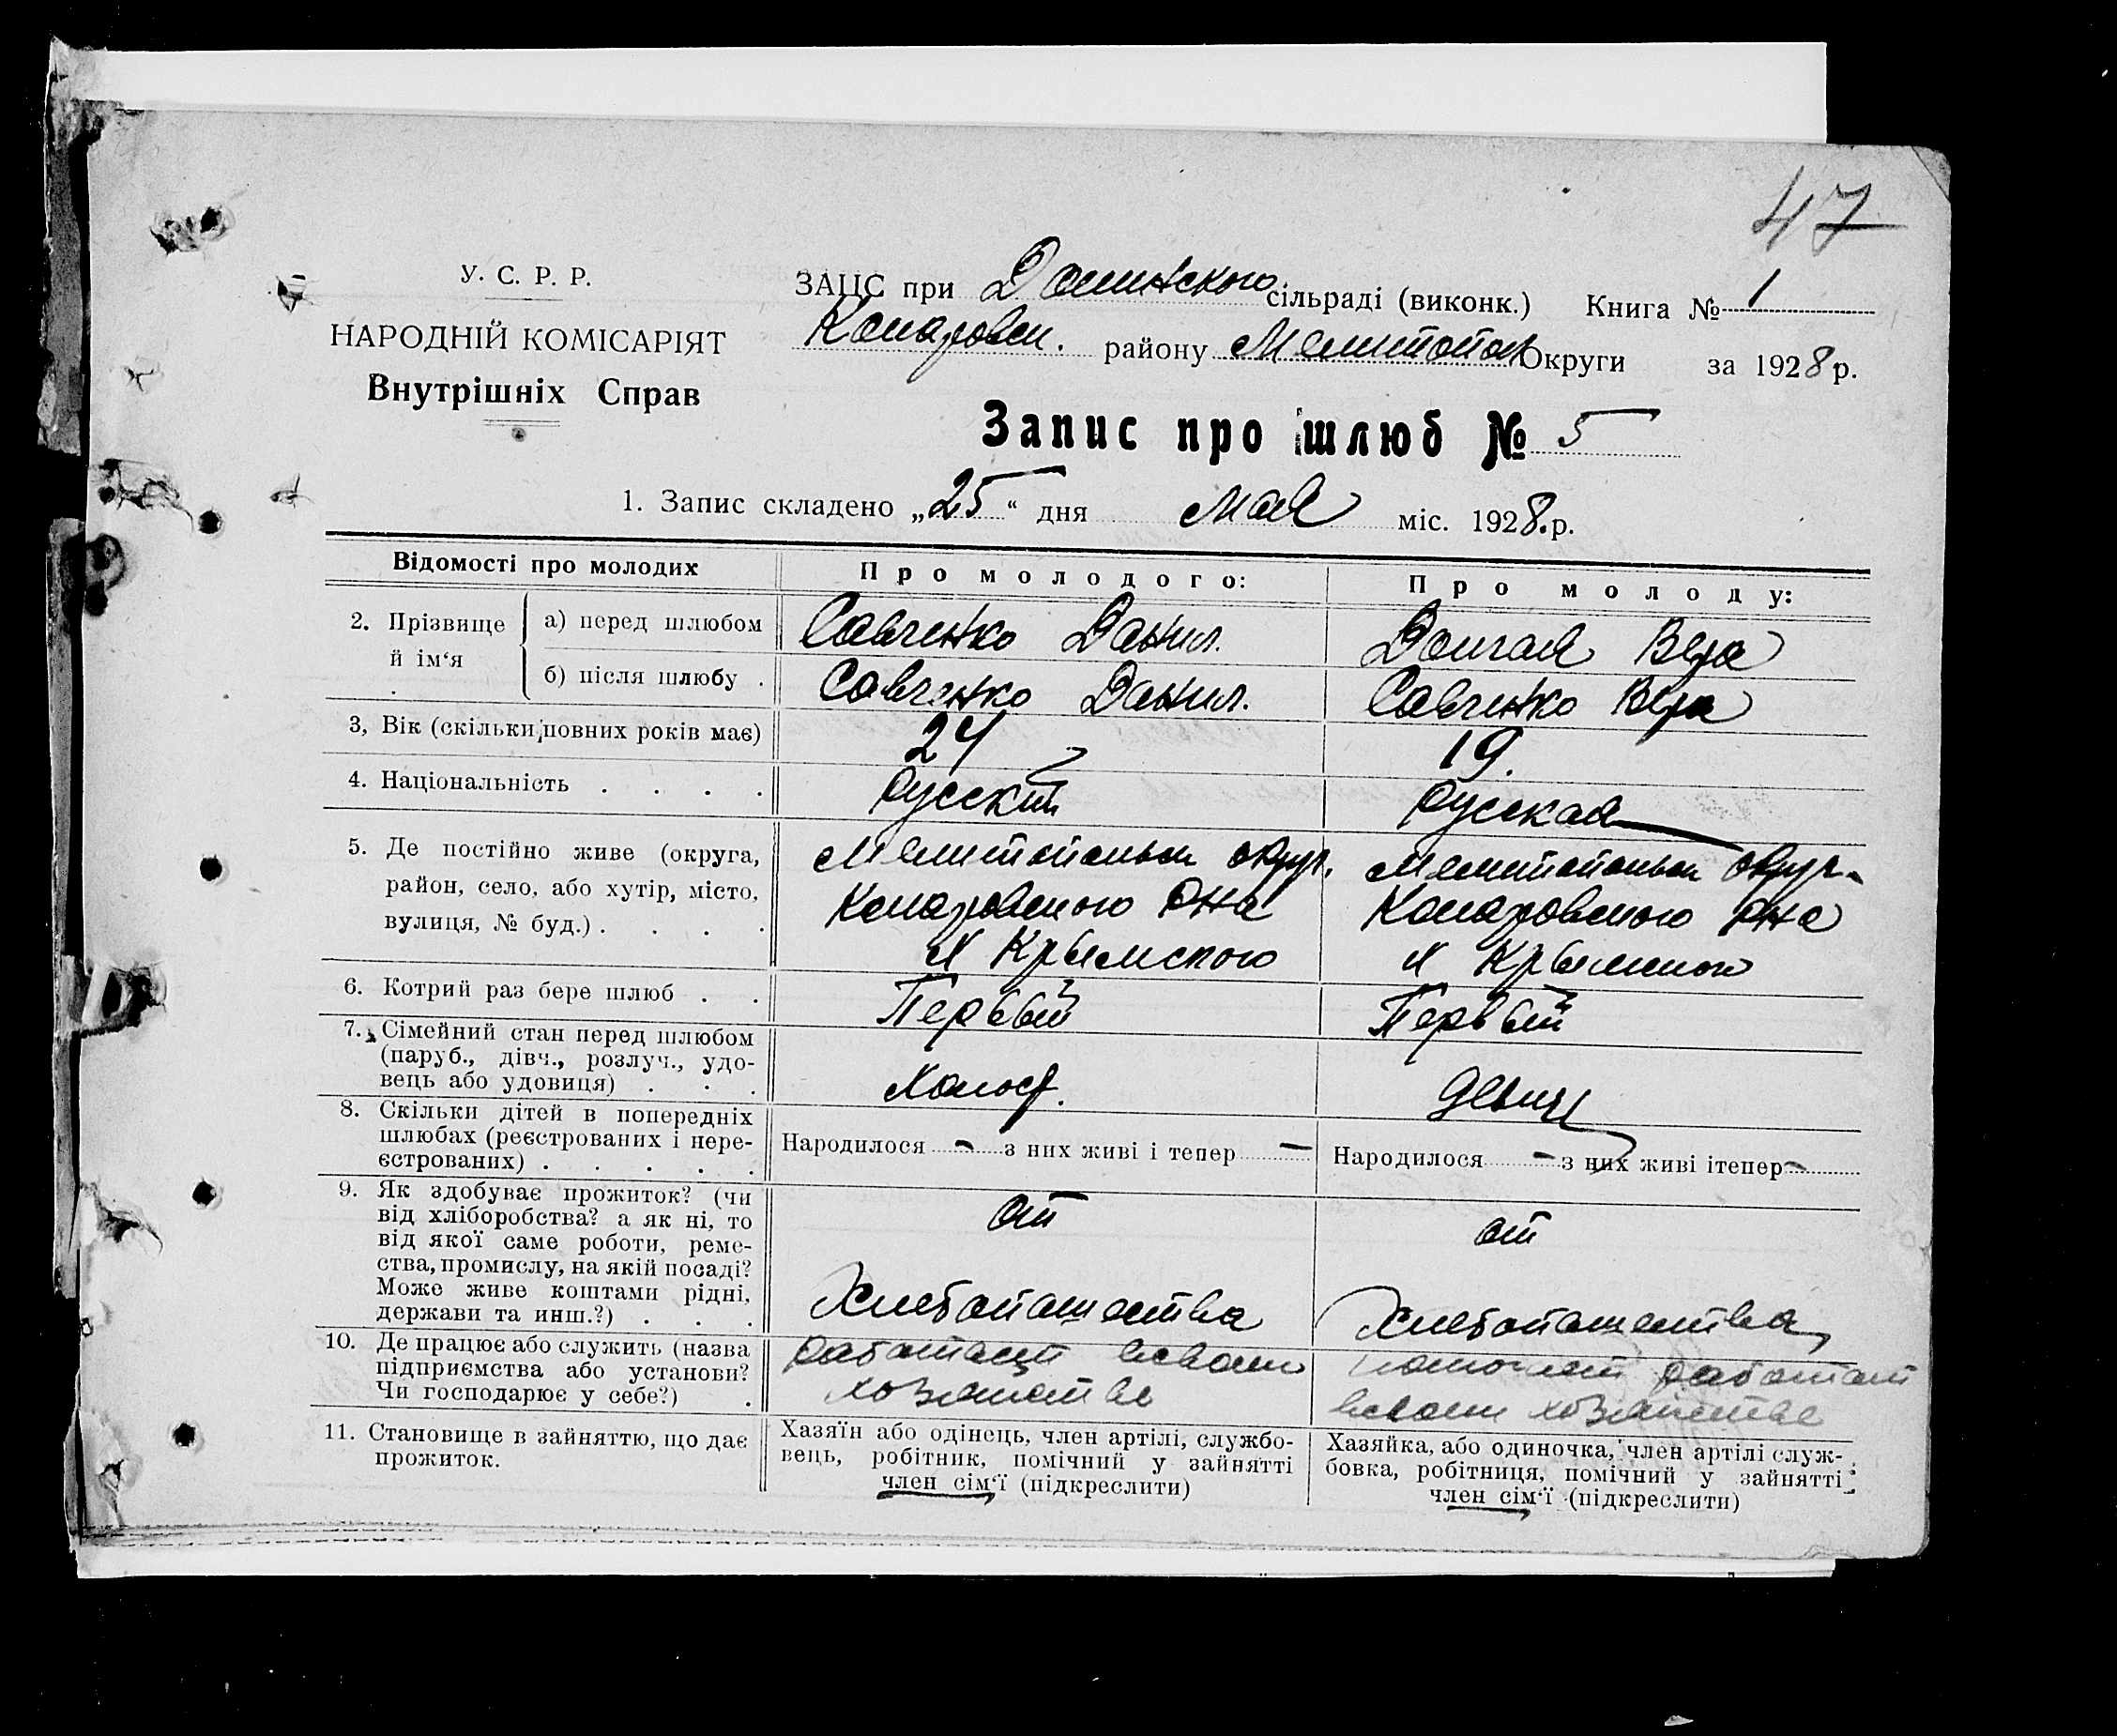 47
У. С. Р. Р.
НАРОДНІЙ КОМІСАРІЯТ
Внутрішніх Справ
ЗАЦС при Долинского сільраді (виконк.) Книга № 1
Комаровск. району Мелитопол Округи за 1928 р.
Запис про шлюб № 5
1. Запис складено „25“ дня мая міс. 1928.р.
Відомості про молодих
Про молодого:
Про молоду:
2. Прізвище й ім‘я
а) перед шлюбом
Савченко Данил.
Долгая Вера
б) після шлюбу .
Савченко Данил.
Савченко Вера
3, Вік (скільки повних років має)
24
19.
4. Національність . . . .
Русский
Русская
5. Де постійно живе (округа,
район, село, або хутір, місто,
вулиця, № буд.) . . . .
Мелитопольск округ.
Комаровского Рна
Х Крымского
Мелитопольск округ.
Комаровского Рна
Х Крымского
6. Котрий раз бере шлюб . .
Первый
Первый
7. Сімейний стан перед шлюбом
(паруб., дівч., розлуч., удо-
вець або удовиця) . . .
Холост.
Девиц
8. Скільки дітей в попередніх
шлюбах (реєстрованих і нере-
єстрованих) . . . . .
Народилося - з них живі і тепер -
Народилося - з них живі ітепер -
9. Як здобуває прожиток? (чи
від хліборобства? а як ні, то
від якої саме роботи, реме-
ства, промислу, на якій посаді?
Може живе коштами рідні,
держави та инш.?) . . .
от
Хлебопашества
от
Хлебопашества
10. Де працює або служить (назва
підприємства або установи?
Чи господарює у себе?) .
Работает всвоем
хозяистве
помогает работат
всвоем хозяистве
11. Становище в зайняттю, що дає
прожиток.
Хазяїн або одінець, член артілі, службо-
вець, робітник, помічний у зайнятті
член сім‘ї (підкреслити)
Хазяйка, або одиночка, член артілі служ-
бовка, робітниця, помічний у зайнятті
член сім‘ї (підкреслити)